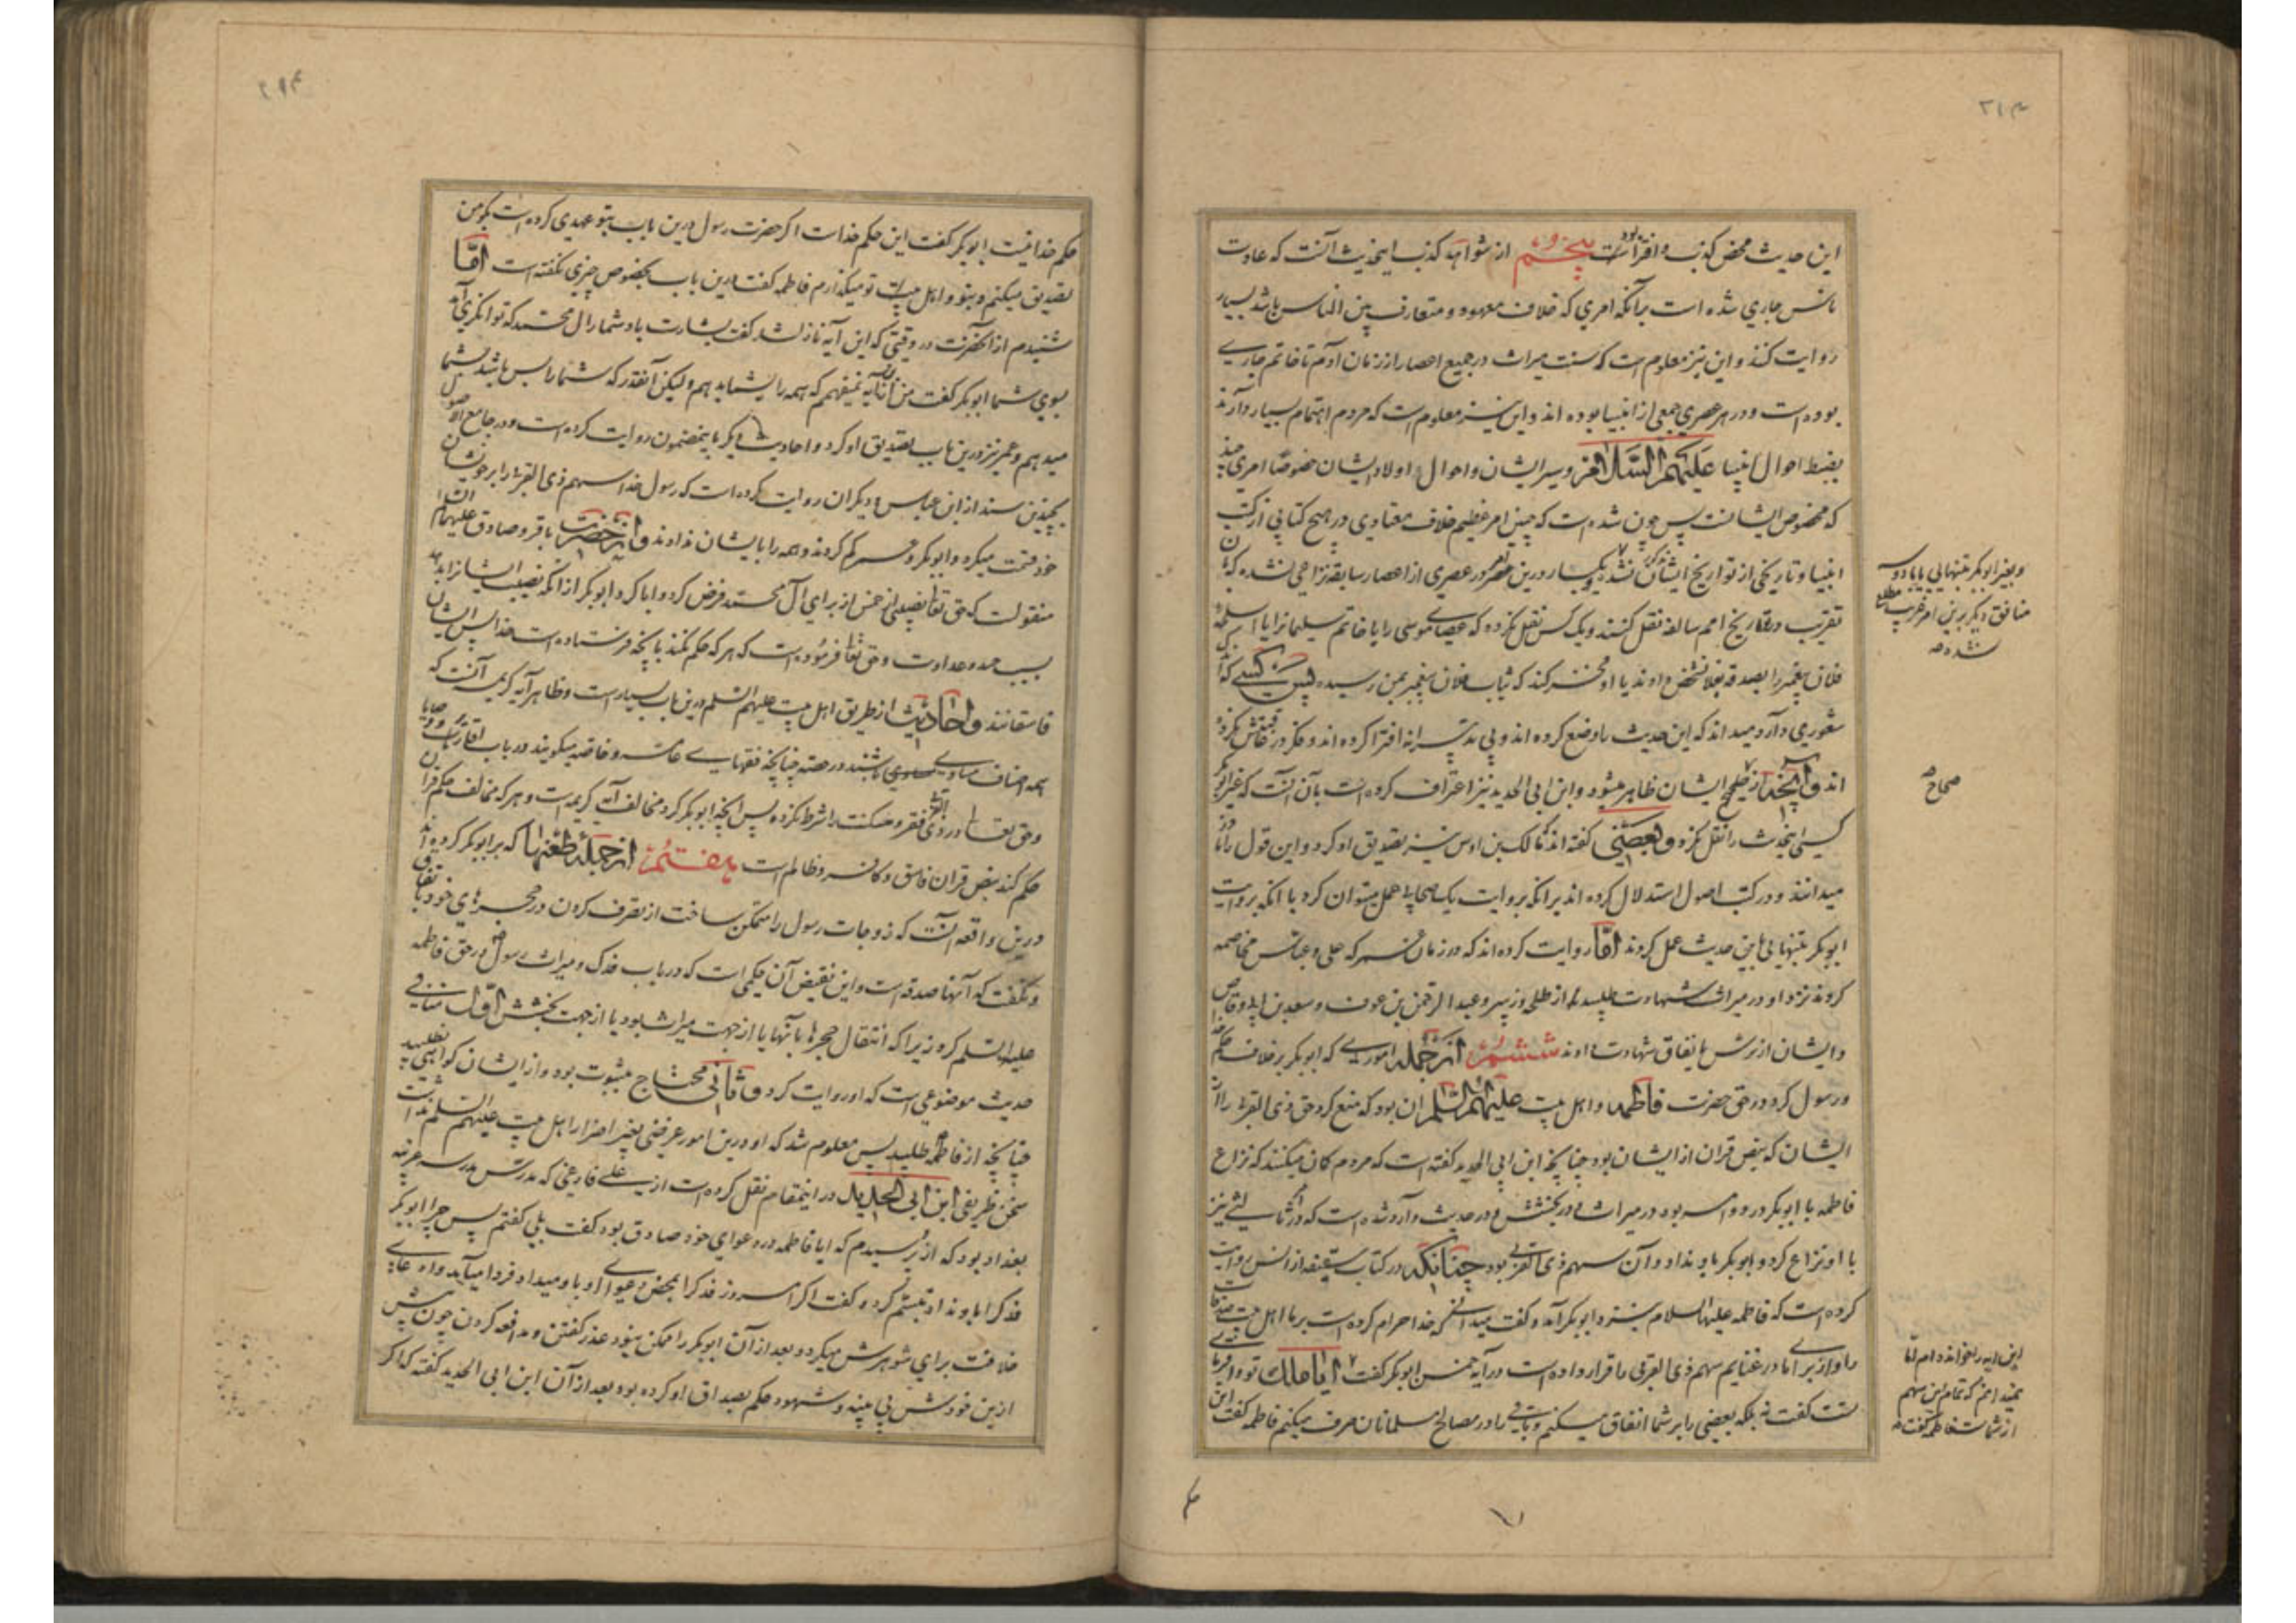 ۳۱۳
این حدیث محض کذب و افترا بوده است پنجم از شواهد کذب این حدیث آنست که عادت
ناس جاری شده است بر آنکه امری که خلاف معهود و متعارف بین الناس باشد بسیار
روایت کنند و این نیز معلوم است که سنت میراث در جمیع اعصار از زمان آدم تا خاتم جاری
بوده است و در هر عصری جمعی از انبیا بوده اند و این نیز معلوم است که مردم اهتمام بسیار دارند
بضبط احوال انبیا علیهم السلام و سیر ایشان و احوال اولاد ایشان خصوصا امری چند
که مخصوص ایشانست پس چون شده است که چنین امر عظیم خلاف معتادی در هیچ کتابی از کتب
انبیا و تاریخی از تواریخ ایشان مذکور نشد و یکبار درین در عصری از اعصار سابقه نزاعی نشده که بآن
تقریب در تاریخ امم سالفه نقل کنند و یک کس نقل نکرده که عصای موسی را یا خاتم سلیمانرا یا اسلحه
فلان پیغمبر را بصدقه بفلان شخص دادند یا او فخر کند که ثیاب فلان پیغمبر بمن رسیده پس کسی که اندک
شعوری دارد میداند که این حدیث را وضع کرده اند و بی تدبیرانه افترا کرده اند و فکر در قباحتش نکرده
اند و آنچه از صحاح ایشان ظاهر میشود و ابن ابی الحدید نیز اعتراف کرده است بآن آنست که غیر ابوبکر
کسی این حدیث را نقل نکرد و بعضی گفته اند مالک بن اوس نیز تصدیق او کرد و این قول را نادر
میدانند و در کتب اصول استدلال کرده اند بر آنکه بروایت یک صحابی عمل میتوان کرد با آنکه بروایت
ابوبکر بتنهائی باین حدیث عمل کردند اما روایت کرده اند که در زمان عمر که علی و عباس مخاصمه
کردند نزد او در میراث شهادت طلبید از طلحه و زبیر و عبد الرحمن بن عوف و سعد بن ابی وقاص
و ایشان از ترس باتفاق شهادت دادند ششم از جمله اموری که ابوبکر بر خلاف حکم خدا
و رسول کرد در حق حضرت فاطمه و اهل بیت علیهم السلم آن بود که منع کرد حق ذی القربی را از
ایشان که بنص قرآن از ایشان بود چنانچه ابن ابی الحدید گفته است که مردم گمان میکنند که نزاع
فاطمه با ابوبکر در دو امر بود در میراث و در بخشش و در حدیث وارد شده است که در ثالثی نیز
با او نزاع کرد و ابوبکر باو نداد و آن سهم ذی القربی بود چنانکه در کتاب سقیفه از انس روایت
کرده است که فاطمه علیها السلام بنزد ابوبکر آمد و گفت میدانی که خدا حرام کرده است بر ما اهل بیت صدقات
ما و از برای ما در غنایم سهم ذی القربی را قرار داده است در آیه خمس ابوبکر گفت ایا ملک تو و اقربای
تست گفت نه بلکه بعضی را بر شما انفاق میکنم و باقی را در مصالح مسلمانان صرف میکنم فاطمه گفت این
حکم
و بغیر ابوبکر بتنهایی یا با دو سه
منافق دیگر برین امر غریب مطلع
نشده
صحاح
این آیه را خوانده ام اما
نمیدانم که تمام این سهم
از شماست فاطمه گفت
حکم خدا نیست ابوبکر گفت این حکم خداست اگر حضرت رسول درین باب بتو عهدی کرده است بگو من
تصدیق میکنم و بتو و اهل بیت تو میگذارم فاطمه گفت درین باب بخصوص چیزی نگفته است اما
شنیدم از آنحضرت در وقتی که این آیه نازل شد گفت بشارت باد شما را آل محمد که توانگری آمد
بسوی شما ابوبکر گفت من از آیه نمیفهمم که همه را بشما بدهم ولیکن آنقدر که شما را بس باشد بشما
میدهم و عمر نیز درین باب تصدیق او کرد و احادیث دیگر باین مضمون روایت کرده است و در جامع الاصول
بچندین سند از ابن عباس و دیگران روایت کرده است که رسول خدا سهم ذی القربی را بر خویشان
خود قسمت میکرد و ابوبکر و عمر کم کردند و همه را بایشان ندادند و از حضرت باقر و صادق علیهما السلام
منقولست که حق تعالی نصیبی از خمس از برای آل محمد فرض کرد و ابا کرد ابوبکر از آنکه نصیب ایشانرا بدهد
بسبب حسد و عداوت و حق تعالی فرموده است که هر که حکم نکند بآنچه فرستاده است خدا پس ایشان
فاسقانند و احادیث از طریق اهل بیت علیهم السلم درین باب بسیار است و ظاهر آیه کریمه آنست که
همه اصناف مساوی باشند در حصه چنانچه فقهای عامه و خاصه میگویند در باب اقاریر و وصایا
و حق تعالی در ذی القربی فقر و مسکنت را شرط نکرده پس آنچه ابوبکر کرد مخالف آیه کریمه است و هر که مخالف حکم قرآن
حکم کند بنص قرآن فاسق و کافر و ظالم است هفتم از جمله طعنها که بر ابوبکر کرده اند
درین واقعه آنست که زوجات رسول را متمکن ساخت از تصرف کردن در حجرهای خود باتفاق
و نگفت که آنها صدقه است و این نقیض آن حکمی است که در باب فدک و میراث رسول در حق فاطمه
علیها السلم کرد زیرا که انتقال حجرها بآنها یا از جهت میراث بود یا از جهت بخشش اول منافی
حدیث موضوعی است که او روایت کرد و ثانی محتاج بثبوت بود و از ایشان گواهی نطلبید
چنانچه از فاطمه طلبید پس معلوم شد که او درین امور غرضی بغیر اضرار اهل بیت علیهم السلم نداشت
سخن ظریفی ابن ابی الحدید در اینمقام نقل کرده است از علی فارقی که مدرس مدرسه غربیه
بغداد بود که از او پرسیدم که ایا فاطمه در دعوای خود صادق بود گفت بلی گفتم پس چرا ابوبکر
فدک را باو نداد تبسم کرد و گفت اگر امروز فدک را بمحض دعوای او باو میداد فردا میآمد و ادعای
خلافت برای شوهرش میکرد و بعد از آن ابوبکر را ممکن نبود عذر گفتن و مدافعه کردن چون
ازین خودش بی بینه و شهود حکم بصداق او کرده بود بعد از آن ابن ابی الحدید گفته که اگر